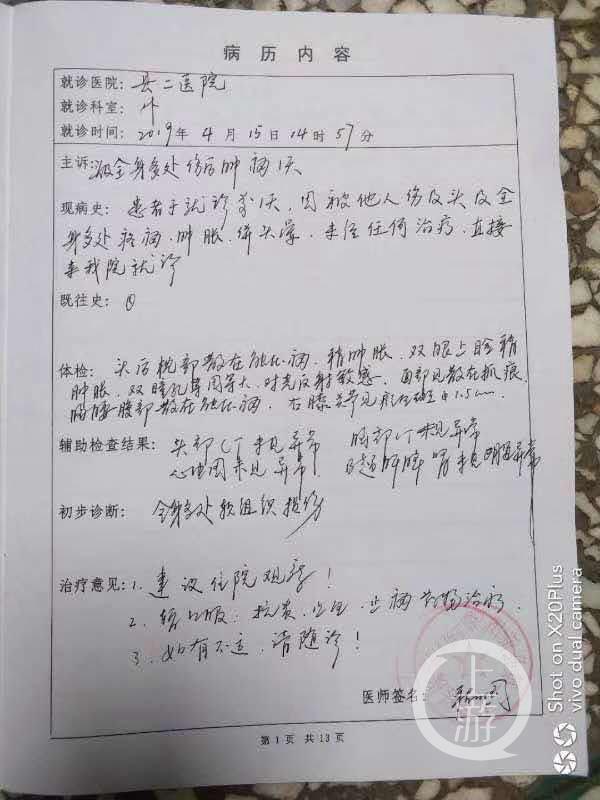 病历内容
就诊医院：县二医院
就诊科室：外
就诊时间：2019年4月15日14时57分
主诉：全身多处伤后肿痛1天
现病史：患者于就诊前1天，因被他人伤及头及全
身多处疼痛、肿胀、伴头晕，未经任何治疗，直接
来我院就诊
既往史：
体检：头后枕部散在触压痛，稍肿胀，双眼上睑稍
肿胀，双瞳孔等圆等大，对光反射敏感，面部见散在抓痕，
胸腰腹部散在触压痛，右膝关节见 1.5cm
辅助检查结果：头部CT未见异常 胸部CT未见异常
心电图未见异常 B超肝脾肾未见明显异常
初步诊断：全身多处软组织损伤
治疗意见：1、建议住院观察！
2、口服：抗炎、止痛药物治疗。
3、如有不适，请随诊！
医师签名：
第1页 共13页
上游
Shot on X20Plus
vivo dual camera